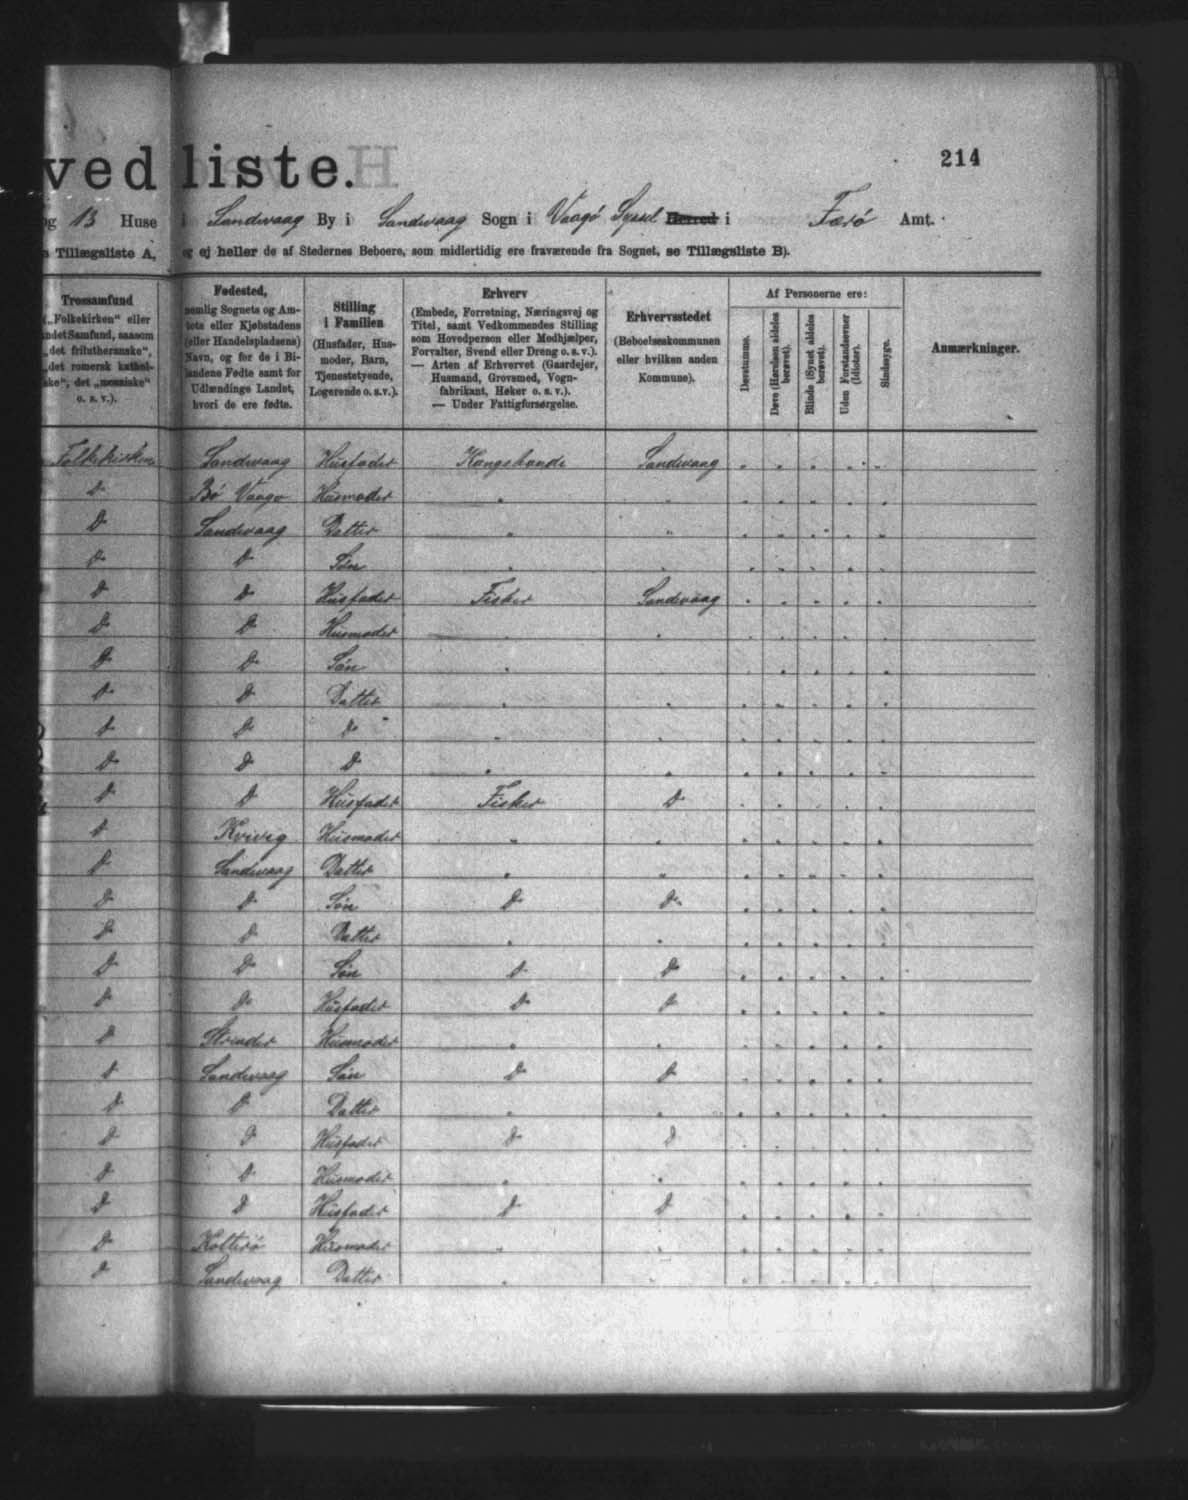 ved liste.
214
og 13 Huse i Sandevaag By i Sandevaag Sogn i Vaagø Syssel Herred i Færø Amt.
Tillægsliste A, og ej heller de af Stedernes Beboere, som midlertidig ere fraværende fra Sognet, se Tillægsliste B).
Trossamfund
(„Folkekirken“ eller
andet Samfund, saasom
„det frilutheranske“,
„det romersk kathol-
ske“, det „mosaiske“
o. s. v.).
Fødested,
nemlig Sognets og Am-
tets eller Kjøbstadens
(eller Handelspladsens)
Navn, og for de i Bi-
landene Fødte samt for
Udlændinge Landet,
hvori de ere fødte.
Stilling
i Familien
(Husfader, Hus-
moder, Barn,
Tjenestetyende,
Logerende o.s.v.).
Erhverv
(Embede, Forretning, Næringsvej og
Titel, samt Vedkommendes Stilling
som Hovedperson eller Medhjælper,
Forvalter, Svend eller Dreng o. s. v.).
— Arten af Erhvervet (Gaardejer,
Husmand, Grovsmed, Vogn-
fabrikant, Høker o. s. v.).
— Under Fattigforsørgelse.
Erhvervsstedet
(Beboelseskommunen
eller hvilken anden
Kommune).
Af Personerne ere:
Døvstumme.
Døve (Hørelsen aldeles
berøvet).
Blinde (Synet aldeles
berøvet).
Uden Forstandsevner
(Idioter).
Sindssyge.
Anmærkninger.
Folkekirken Sandevaag Husfader Kongsbonde Sandevaag
D Bø Vaagø Husmoder
D Sandevaag Datter
D D Søn
D D Husfader Fisker Sandevaag
D D Husmoder
D D Søn
D D Datter
D D D
D D D
D D Husfader Fisker D
D Kvivig Husmoder
D Sandevaag Datter
D D Søn D D
D D Datter
D D Søn D D
D D Husfader D D
D Strender Husmoder
D Sandevaag Søn D D
D D Datter
D D Husfader D D
D D Husmoder
D D Husfader D D
D Kolterø Husmoder
D Sandevaag Datter